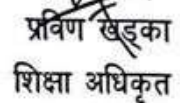 प्रविण खेड्का
शिक्षा अधिकृत